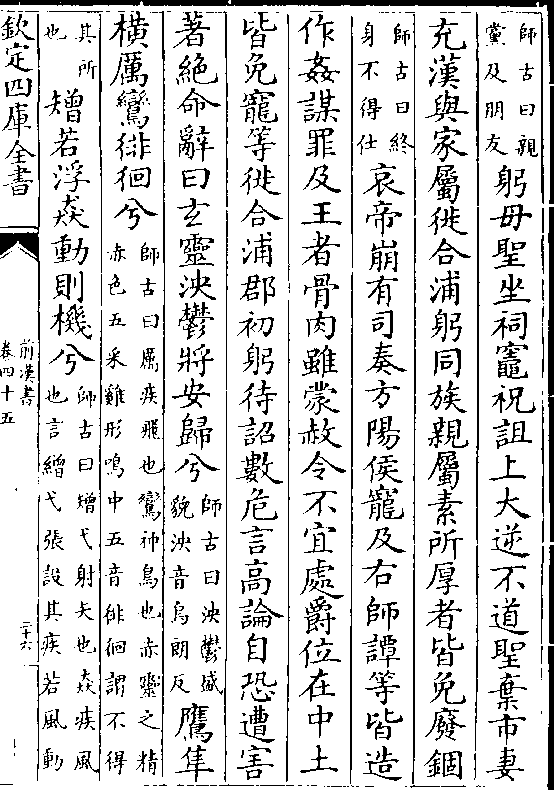 師古曰親黨及朋友躬母聖坐祠竈祝詛上大逆不道聖棄市妻
充漢與家屬徙合浦躬同族親屬素所厚者皆免廢錮
師古曰終身不得仕哀帝崩有司奏方陽侯寵及右師譚等皆造
作姦謀罪及王者骨肉雖蒙赦令不宜處爵位在中土
皆免寵等徙合浦郡初躬待詔數危言高論自恐遭害
著絶命辭曰玄靈泱鬱將安歸兮師古曰泱鬱盛貌泱音烏朗反鷹隼
橫厲鸞徘徊兮師古曰厲疾飛也鸞神鳥也赤靈之精赤色五采雞形鳴中五音徘徊謂不得
其所也矰若浮猋動則機兮師古曰矰弋射矢也猋疾風也言繒弋張設其疾若風動
欽定四庫全書
前漢書
卷四十五
三十六